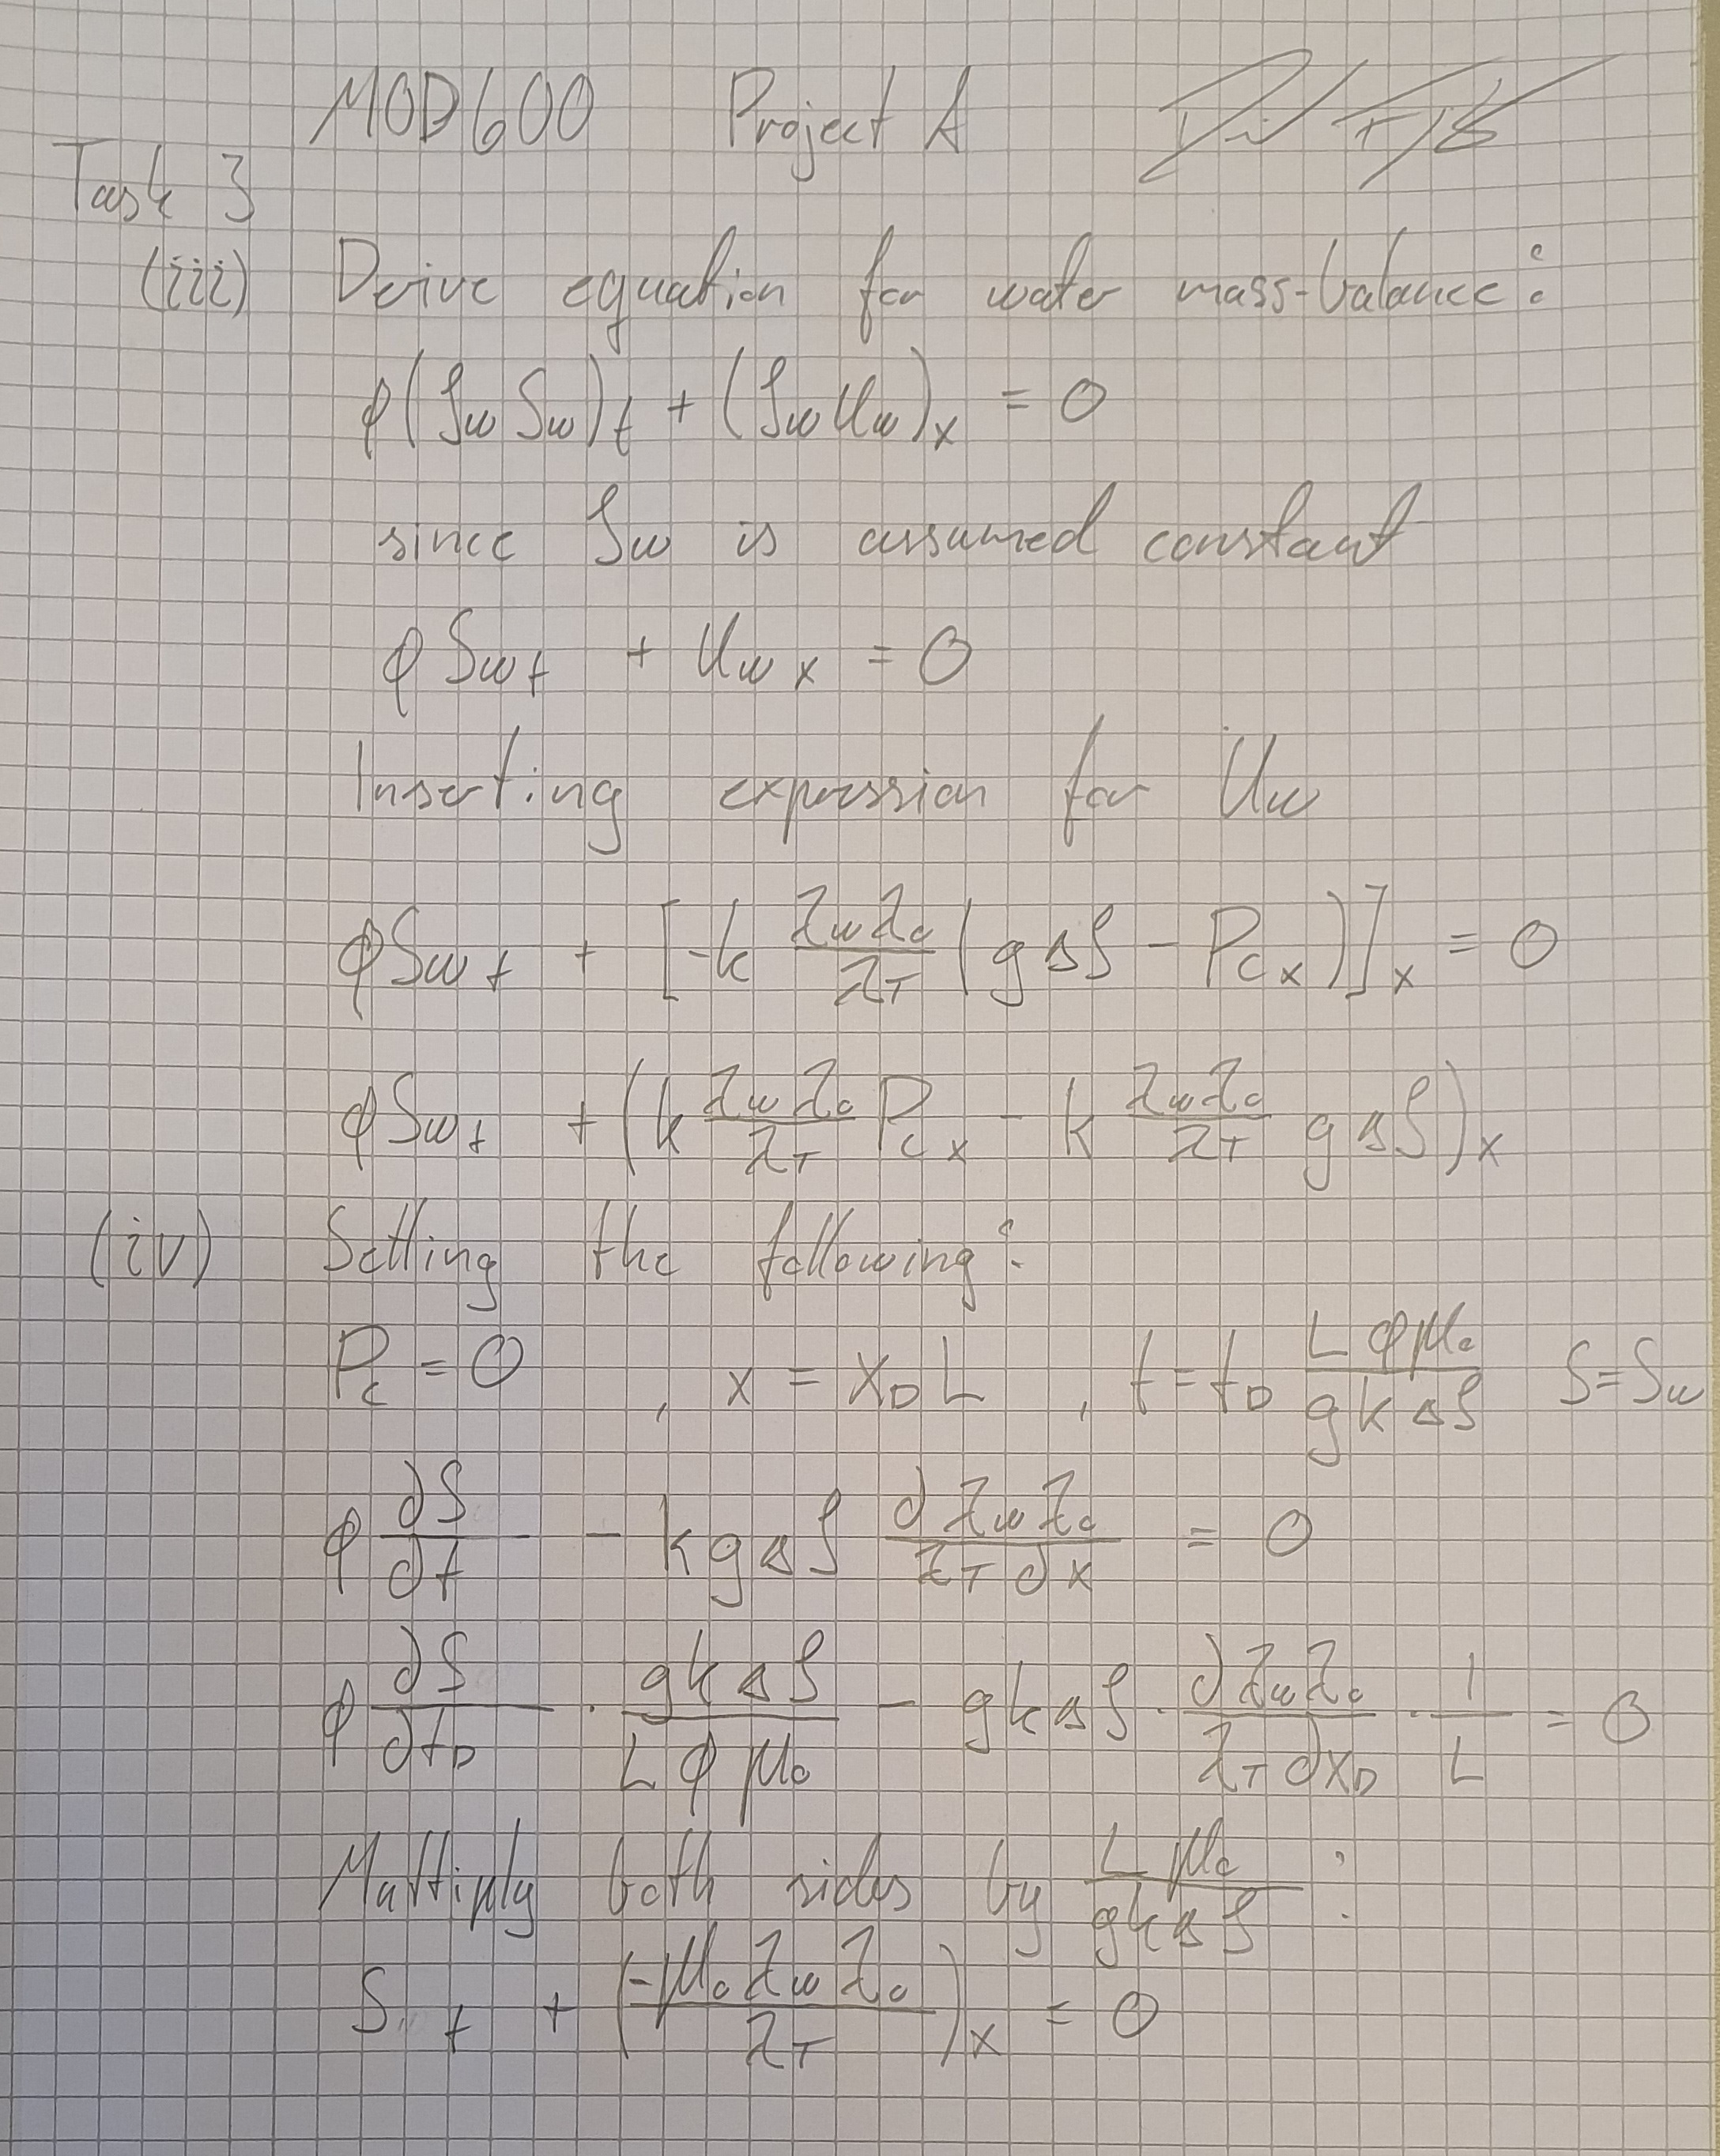 MOD600 Project A
Task 3
(iii) Derive equation for water mass-balance:
φ(ρw Sw)t + (ρw Uw)x = 0
since ρw is assumed constant
φ Sw t + Uw x = 0
Inserting expression for Uw
φSw t + [-k λwλo/λT (gΔρ - Pc x)]x = 0
φSw t + (k λwλo/λT Pc x - k λwλo/λT gΔρ)x
(iv) Setting the following:
Pc = 0 , x = xD L , t = tD Lφμo/gkΔρ S = Sw
φ ∂S/∂t - kgΔρ ∂λwλo/λT∂x = 0
φ ∂S/∂tD · gkΔρ/Lφμo - gkΔρ · ∂λwλo/λT∂xD · 1/L = 0
Multiply both sides by Lμo/gkΔρ :
S t + (-μoλwλo/λT)x = 0